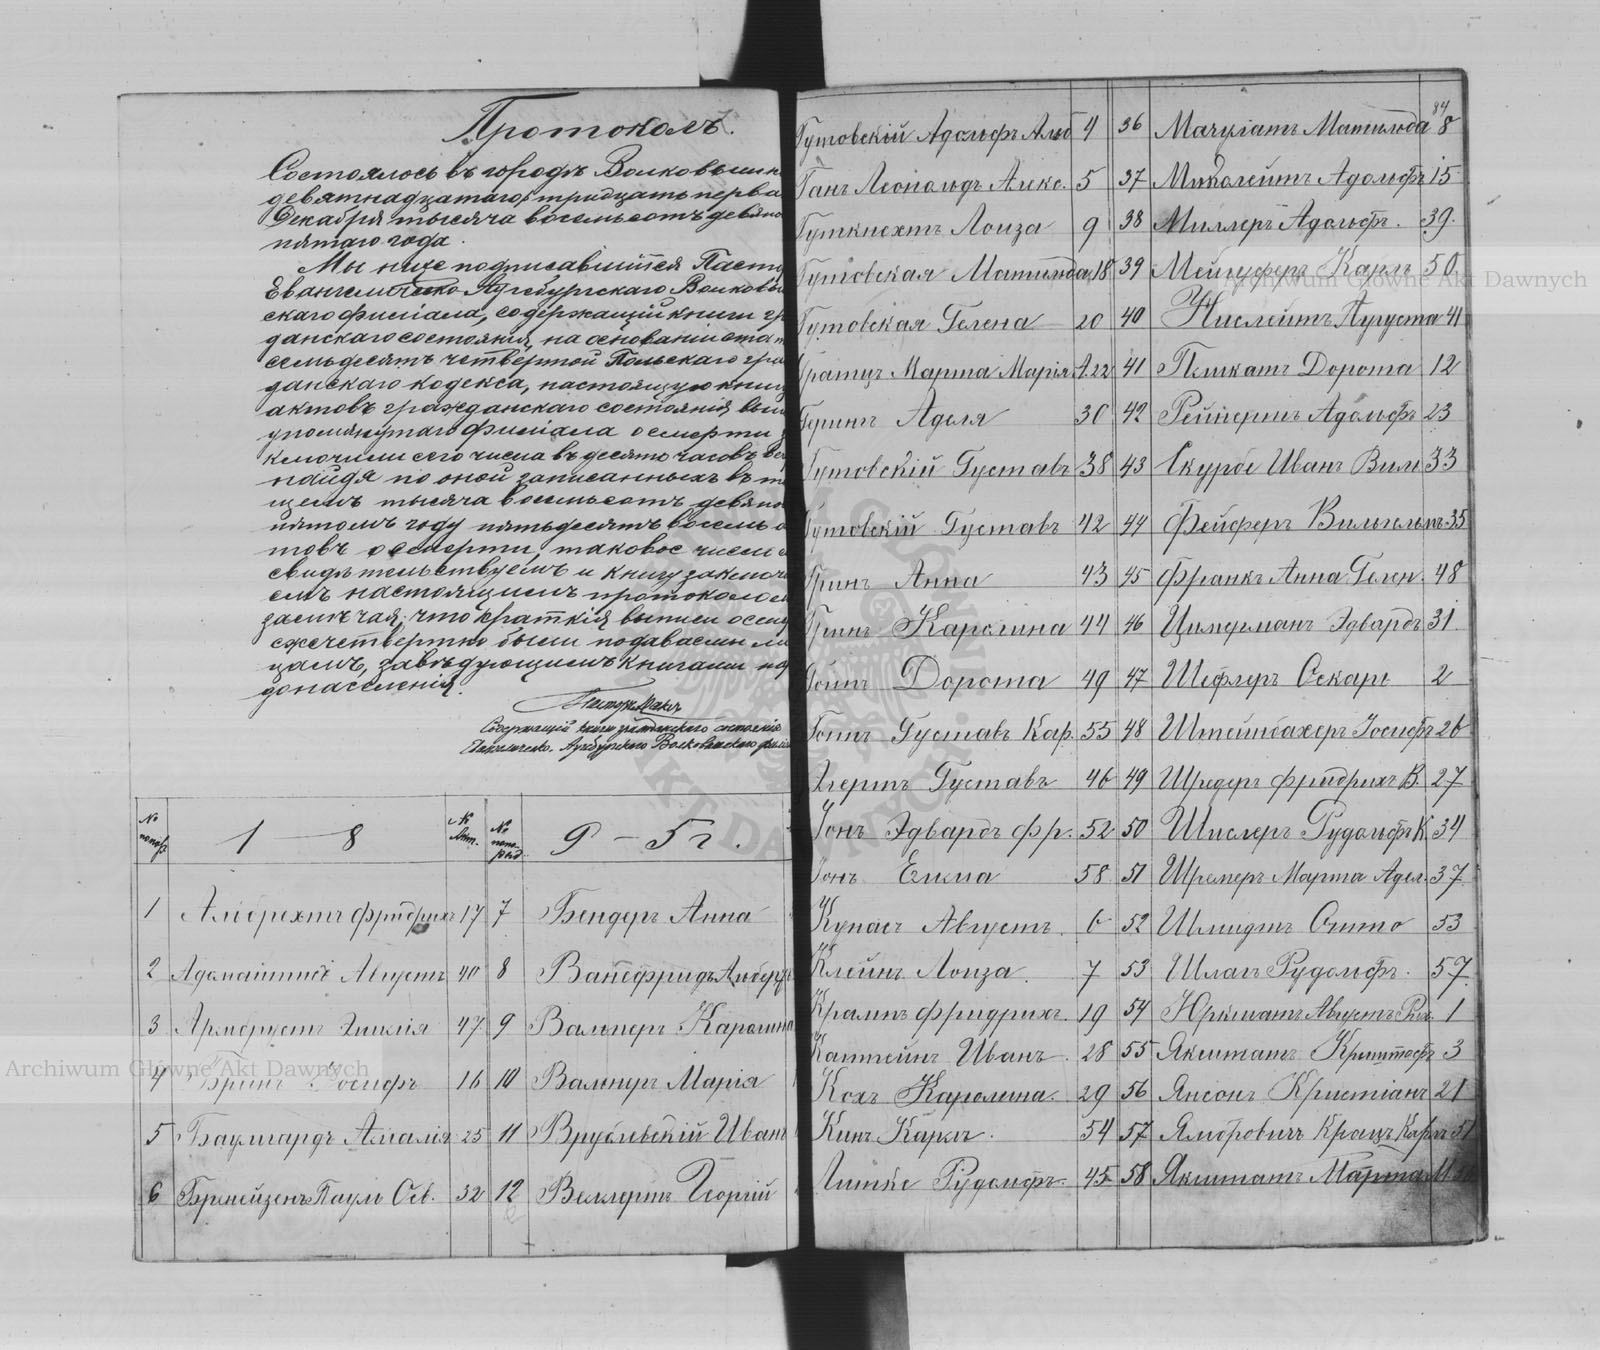 Протоколъ.
Состоялось въ городѣ Волковыш
девятнадцатаго/тридцать перва
Декабря тысяча восемьсотъ девяно
пятаго года.
Мы ниже подписавшійся Пасто
Евангелическо Аугсбургскаго Волковы
скаго филіала, содержащій книги гр
данскаго состоянія, на основаніи стат
семьдесятъ четвертой Польскаго гра
данскаго кодекса, настоящую книг
актовъ гражданскаго состоянія выш
упомянутаго филіала о смерти з
ключили сего числа въ десять часовъ
найдя по оной записанныхъ въ т
щемъ тысяча восемьсотъ девяно
пятомъ году пятьдесятъ восемь а
товъ о смерти, таковое число
свидѣтельствуемъ и книгу заключ
емъ настоящимъ протоколом
замѣчая, что краткія выписи о сме
ежечетвертно были подаваемы ли
цамъ, завѣдующимъ книгами на
донаселенія.
Содержащій книги гражданского состоянія
Аугсбургского Волковышского филіа
№ № Апт. №
1 — 8 9 — 5
1 Албрехтъ Фридрихъ 17 7 Бендеръ Анна
2 Адомайтисъ Августъ 40 8 Вайсфридъ Альберт
3 Армбрустъ Эмилія 47 9 Вальперъ Каролина
4 Бринъ Іосифъ 16 10 Марія
5 Баумгардъ Амалія 25 11 Врублевскій Иванъ
6 Паулъ Ос. 32 12 Веллертъ Георгій
84
Гутовскій Адольфъ Альб 4 36 Мачулатъ Матильда 8
Ганъ Леопольдъ Алекс. 5 37 Миколейтъ Адольфъ 15
Гуткнехтъ Лоиза 9 38 Миллеръ Адольфъ. 39.
Гутовская Матильда 18 39 Карлъ 50
Гутовская Гелена 20 40 Нислейтъ Аугуста 41
Гратцъ Марта Марія А. 22 41 Пликатъ Дорота 12
Геринъ Аделя 30 42 Рейнертъ Адольфъ 23
Гутовскій Густавъ 38 43 Скурбе Иванъ Вилг 33
Гутовскій Густавъ 42 44 Фейферъ Вильгельмъ 35
Гринъ Анна 43 45 Франкъ Анна Гелен. 48
Гринъ Каролина 44 46 Цимерманъ Эдвардъ 31.
Дорота 49 47 Шефлеръ Оскаръ 2
Густавъ Кар. 55 48 Штейнбахеръ Іосифъ 26
Эгертъ Густавъ 46 49 Шредеръ Фридрихъ В. 27
Іонъ Эдвардъ Фр. 52 50 Шислеръ Рудольфъ К 34
Іонъ Емма 58 51 Шремеръ Марта Адел. 37
Купасъ Августъ. 6 52 Шмидтъ Отто 53
Клейнъ Лоиза. 7 53 Шлагъ Рудольфъ. 57.
Крампъ Фридрихъ. 19 54 Юркшатъ Августъ Рих. 1
Каптейнъ Иванъ. 28 55 Якштатъ Криштофъ 3
Кохъ Каролина. 29 56 Янсонъ Кристіанъ 21
Кинъ Карлъ. 54 57 Ямбровичъ Карлъ 51
Липке Рудольфъ. 45 58 Якштатъ Марта
Archiwum Główne Akt Dawnych
Archiwum Główne Akt Dawnych